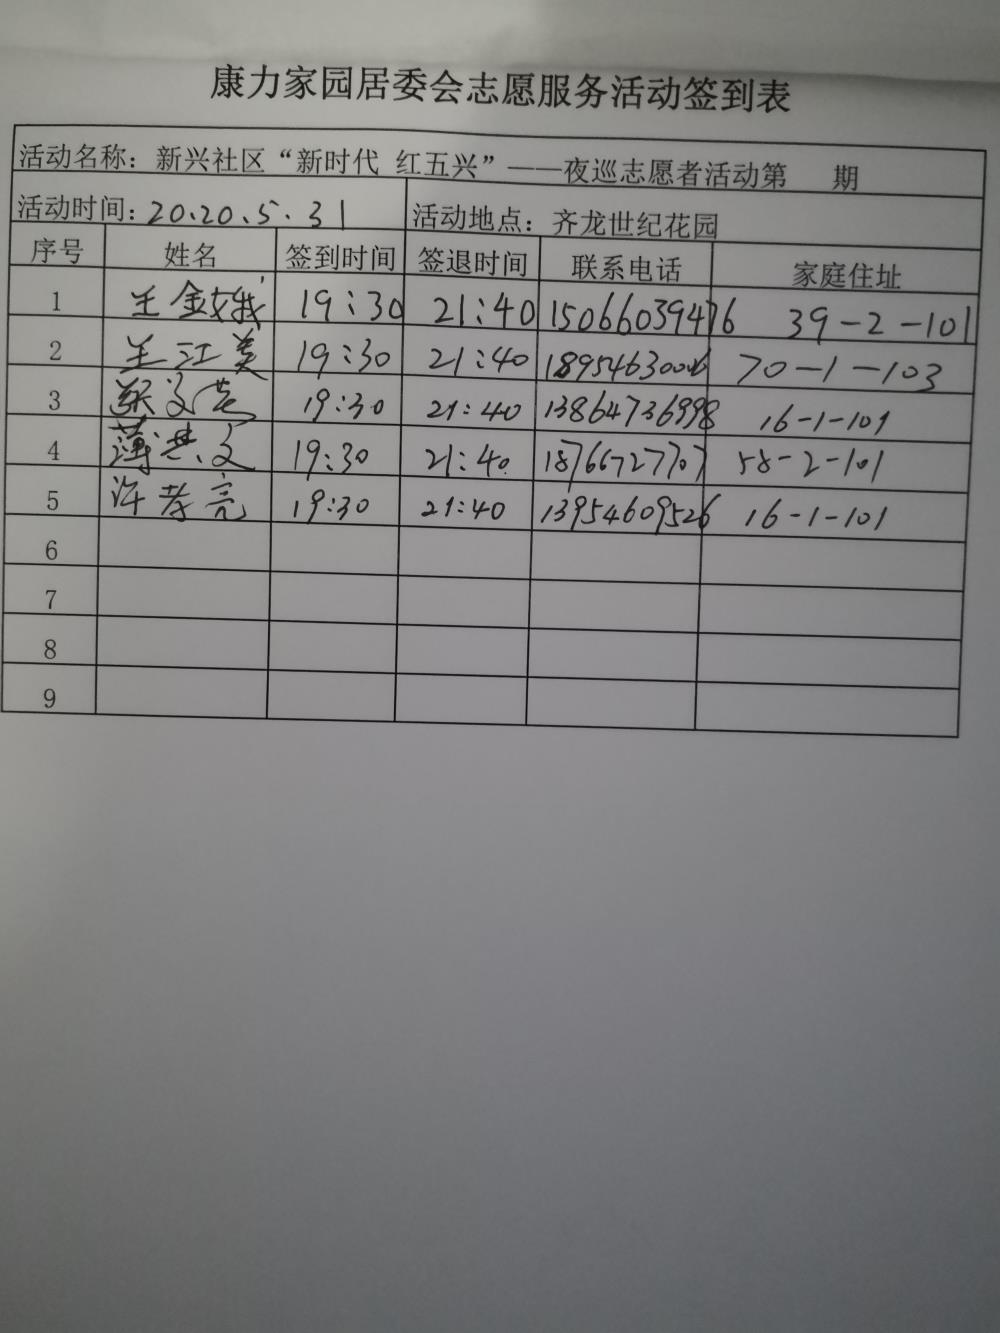 康力家园居委会志愿服务活动签到表
活动名称：新兴社区“新时代 红五兴”——夜巡志愿者活动第 期
活动时间：20.20.5.31 活动地点：齐龙世纪花园
序号 姓名 签到时间 签退时间 联系电话 家庭住址
1 王金娥 19:30 21:40 15066039476 39-2-101
2 王江美 19:30 21:40 70-1-103
3 19:30 21:40 13864736998 16-1-101
4 薄其文 19:30 21:40 18766727707 58-2-101
5 许孝亮 19:30 21:40 13954609526 16-1-101
6
7
8
9